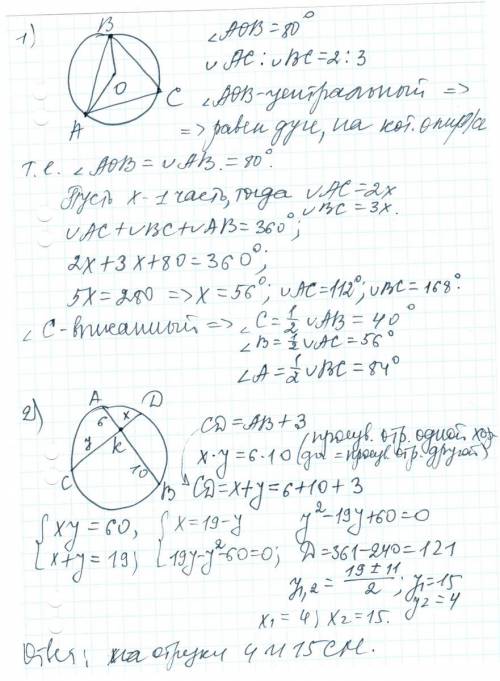 1) B O C A ∠AOB=80°
∪AC:∪BC=2:3
∠AOB-центральный =>
=> равен дуге, на кот. опир/ся
т.е. ∠AOB=∪AB=80°.
Пусть x-1 часть, тогда ∪AC=2x
∪BC=3x.
∪AC+∪BC+∪AB=360°;
2x+3x+80=360°;
5x=280 => x=56°; ∪AC=112°; ∪BC=168°.
∠C-вписанный => ∠C=1/2∪AB=40°
∠B=1/2∪AC=56°
∠A=1/2∪BC=84°
2) A D 6 x y K 10 C B CD=AB+3
x·y=6·10 (произв. отр. одной хор-
ды =произв. отр. другой)
CD=x+y=6+10+3
{xy=60, {x=19-y y²-19y+60=0
{x+y=19; {19y-y²-60=0; D=361-240=121
y₁,₂=(19±11)/2; y₁=15
y₂=4
x₁=4; x₂=15.
Ответ: на отрезки 4 и 15 см.